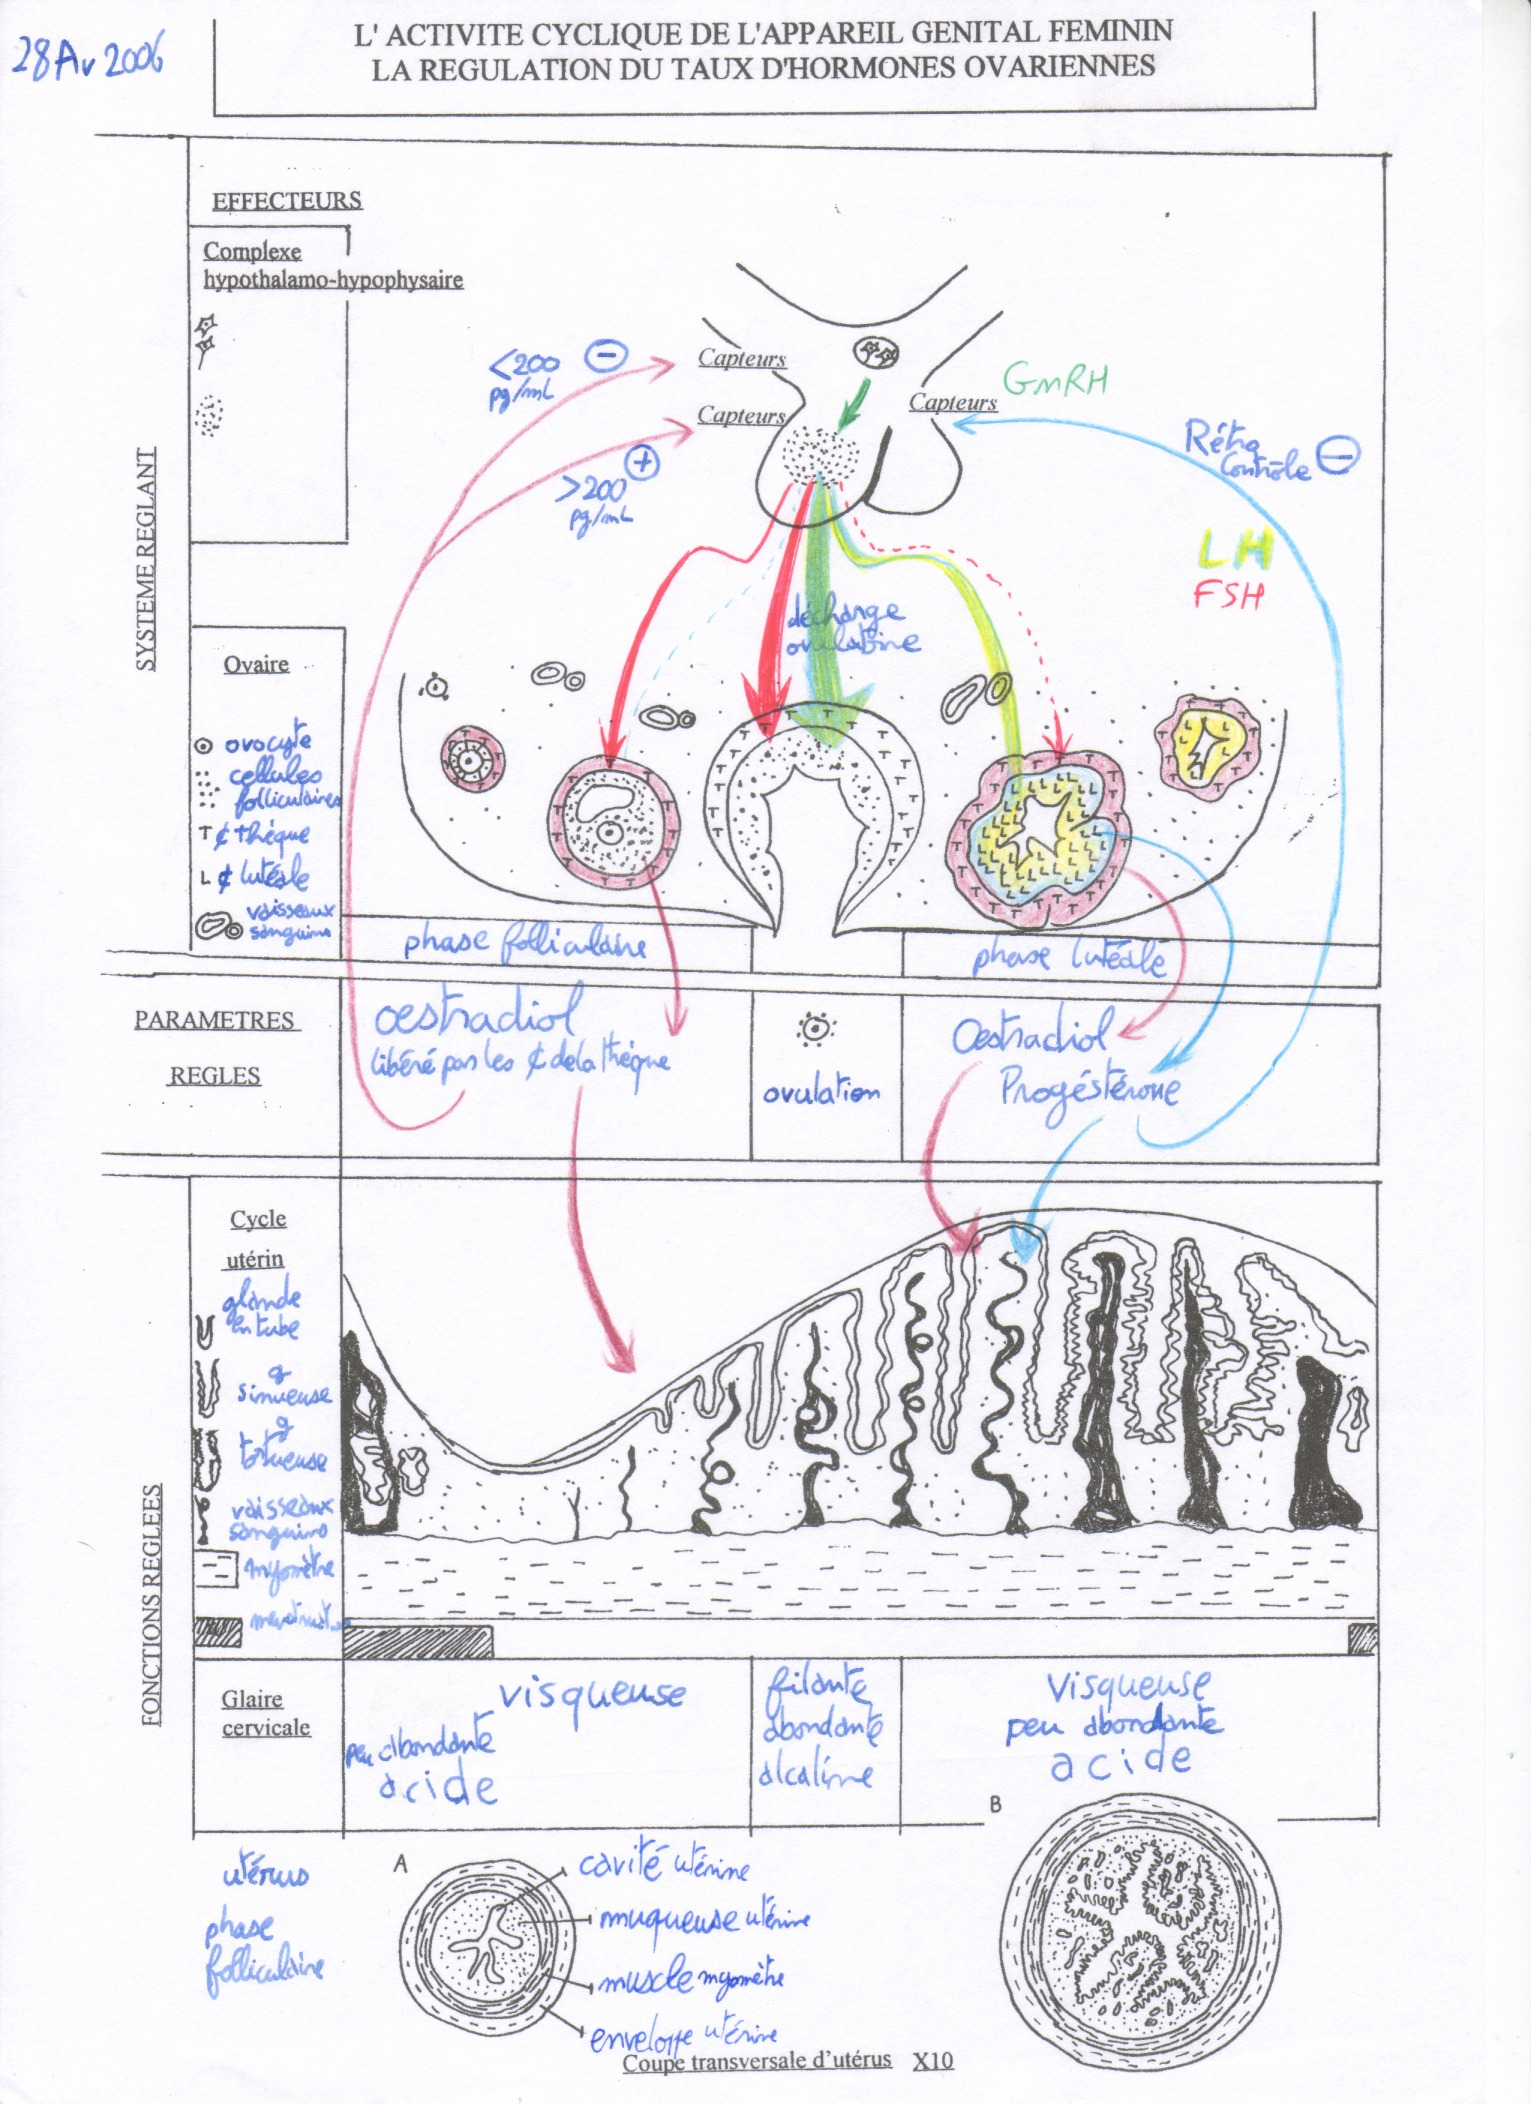 28 Av 2006
L' ACTIVITE CYCLIQUE DE L'APPAREIL GENITAL FEMININ
LA REGULATION DU TAUX D'HORMONES OVARIENNES
SYSTEME REGLANT
EFFECTEURS
Complexe
hypothalamo-hypophysaire
<200
pg/mL
−
Capteurs
Capteurs
>200
pg/mL
+
Capteurs
GnRH
Rétro
contrôle
−
LH
FSH
décharge
ovulatoire
Ovaire
ovocyte
cellules
folliculaires
T ¢ thèque
L ¢ lutéale
vaisseaux
sanguins
phase folliculaire
phase lutéale
PARAMETRES
REGLES
œstradiol
libéré par les ¢ de la thèque
ovulation
Œstradiol
Progéstérone
FONCTIONS REGLEES
Cycle
utérin
glande
en tube
g
sinueuse
g
tortueuse
vaisseaux
sanguins
myomètre
Glaire
cervicale
visqueuse
peu abondante
acide
filante
abondante
alcaline
Visqueuse
peu abondante
acide
utérus
phase
folliculaire
A
cavité utérine
muqueuse utérine
muscle myomètre
enveloppe utérine
B
Coupe transversale d'utérus X10